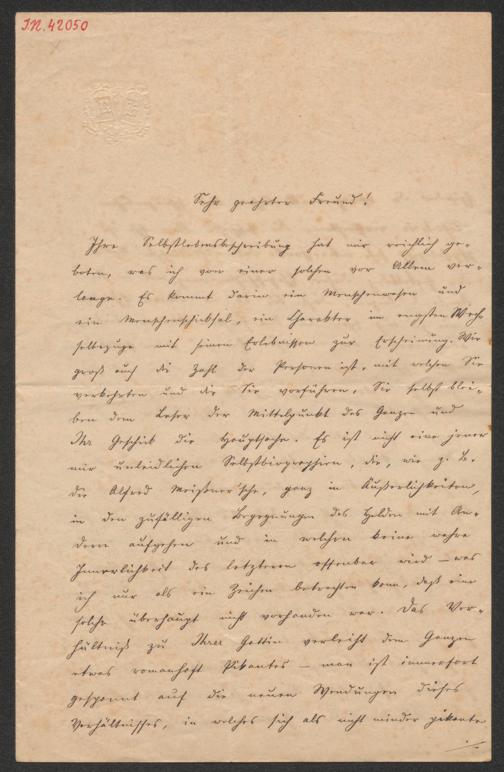 I.N. 42050
Sehr geehrter Freund!
Ihre Selbstlebensbeschreibung hat mir reichlich ge-
boten, was ich von einer solchen vor Allem ver-
lange. Es kommt darin ein Menschenwesen und
ein Menschenschicksal, ein Charakter im engsten Wech-
selbezuge mit seinen Erlebnissen zur Erscheinung. Wie
groß auch die Zahl der Personen ist, mit welchen Sie
verkehrten und die Sie vorführen, Sie selbst blei-
ben dem Leser der Mittelpunkt des Ganzen und
Ihr Geschick die Hauptsache. Es ist nicht eine jener
mir unleidlichen Selbstbiographien, die, wie z. B.
die Alfred Meißner'sche, ganz in Äußerlichkeiten,
in den zufälligen Begegnungen des Helden mit An-
dern aufgehen und in welchen keine wahre
Innerlichkeit des letzteren offenbar wird – was
ich nur als ein Zeichen betrachten kann, daß eine
solche überhaupt nicht vorhanden war. Das Ver-
hältniß zu Ihrer Gattin verleiht dem Ganzen
etwas romanhaft Pikantes – man ist immerfort
gespannt auf die neuen Wendungen dieses
Verhältnisses, in welches sich als nicht minder pikante